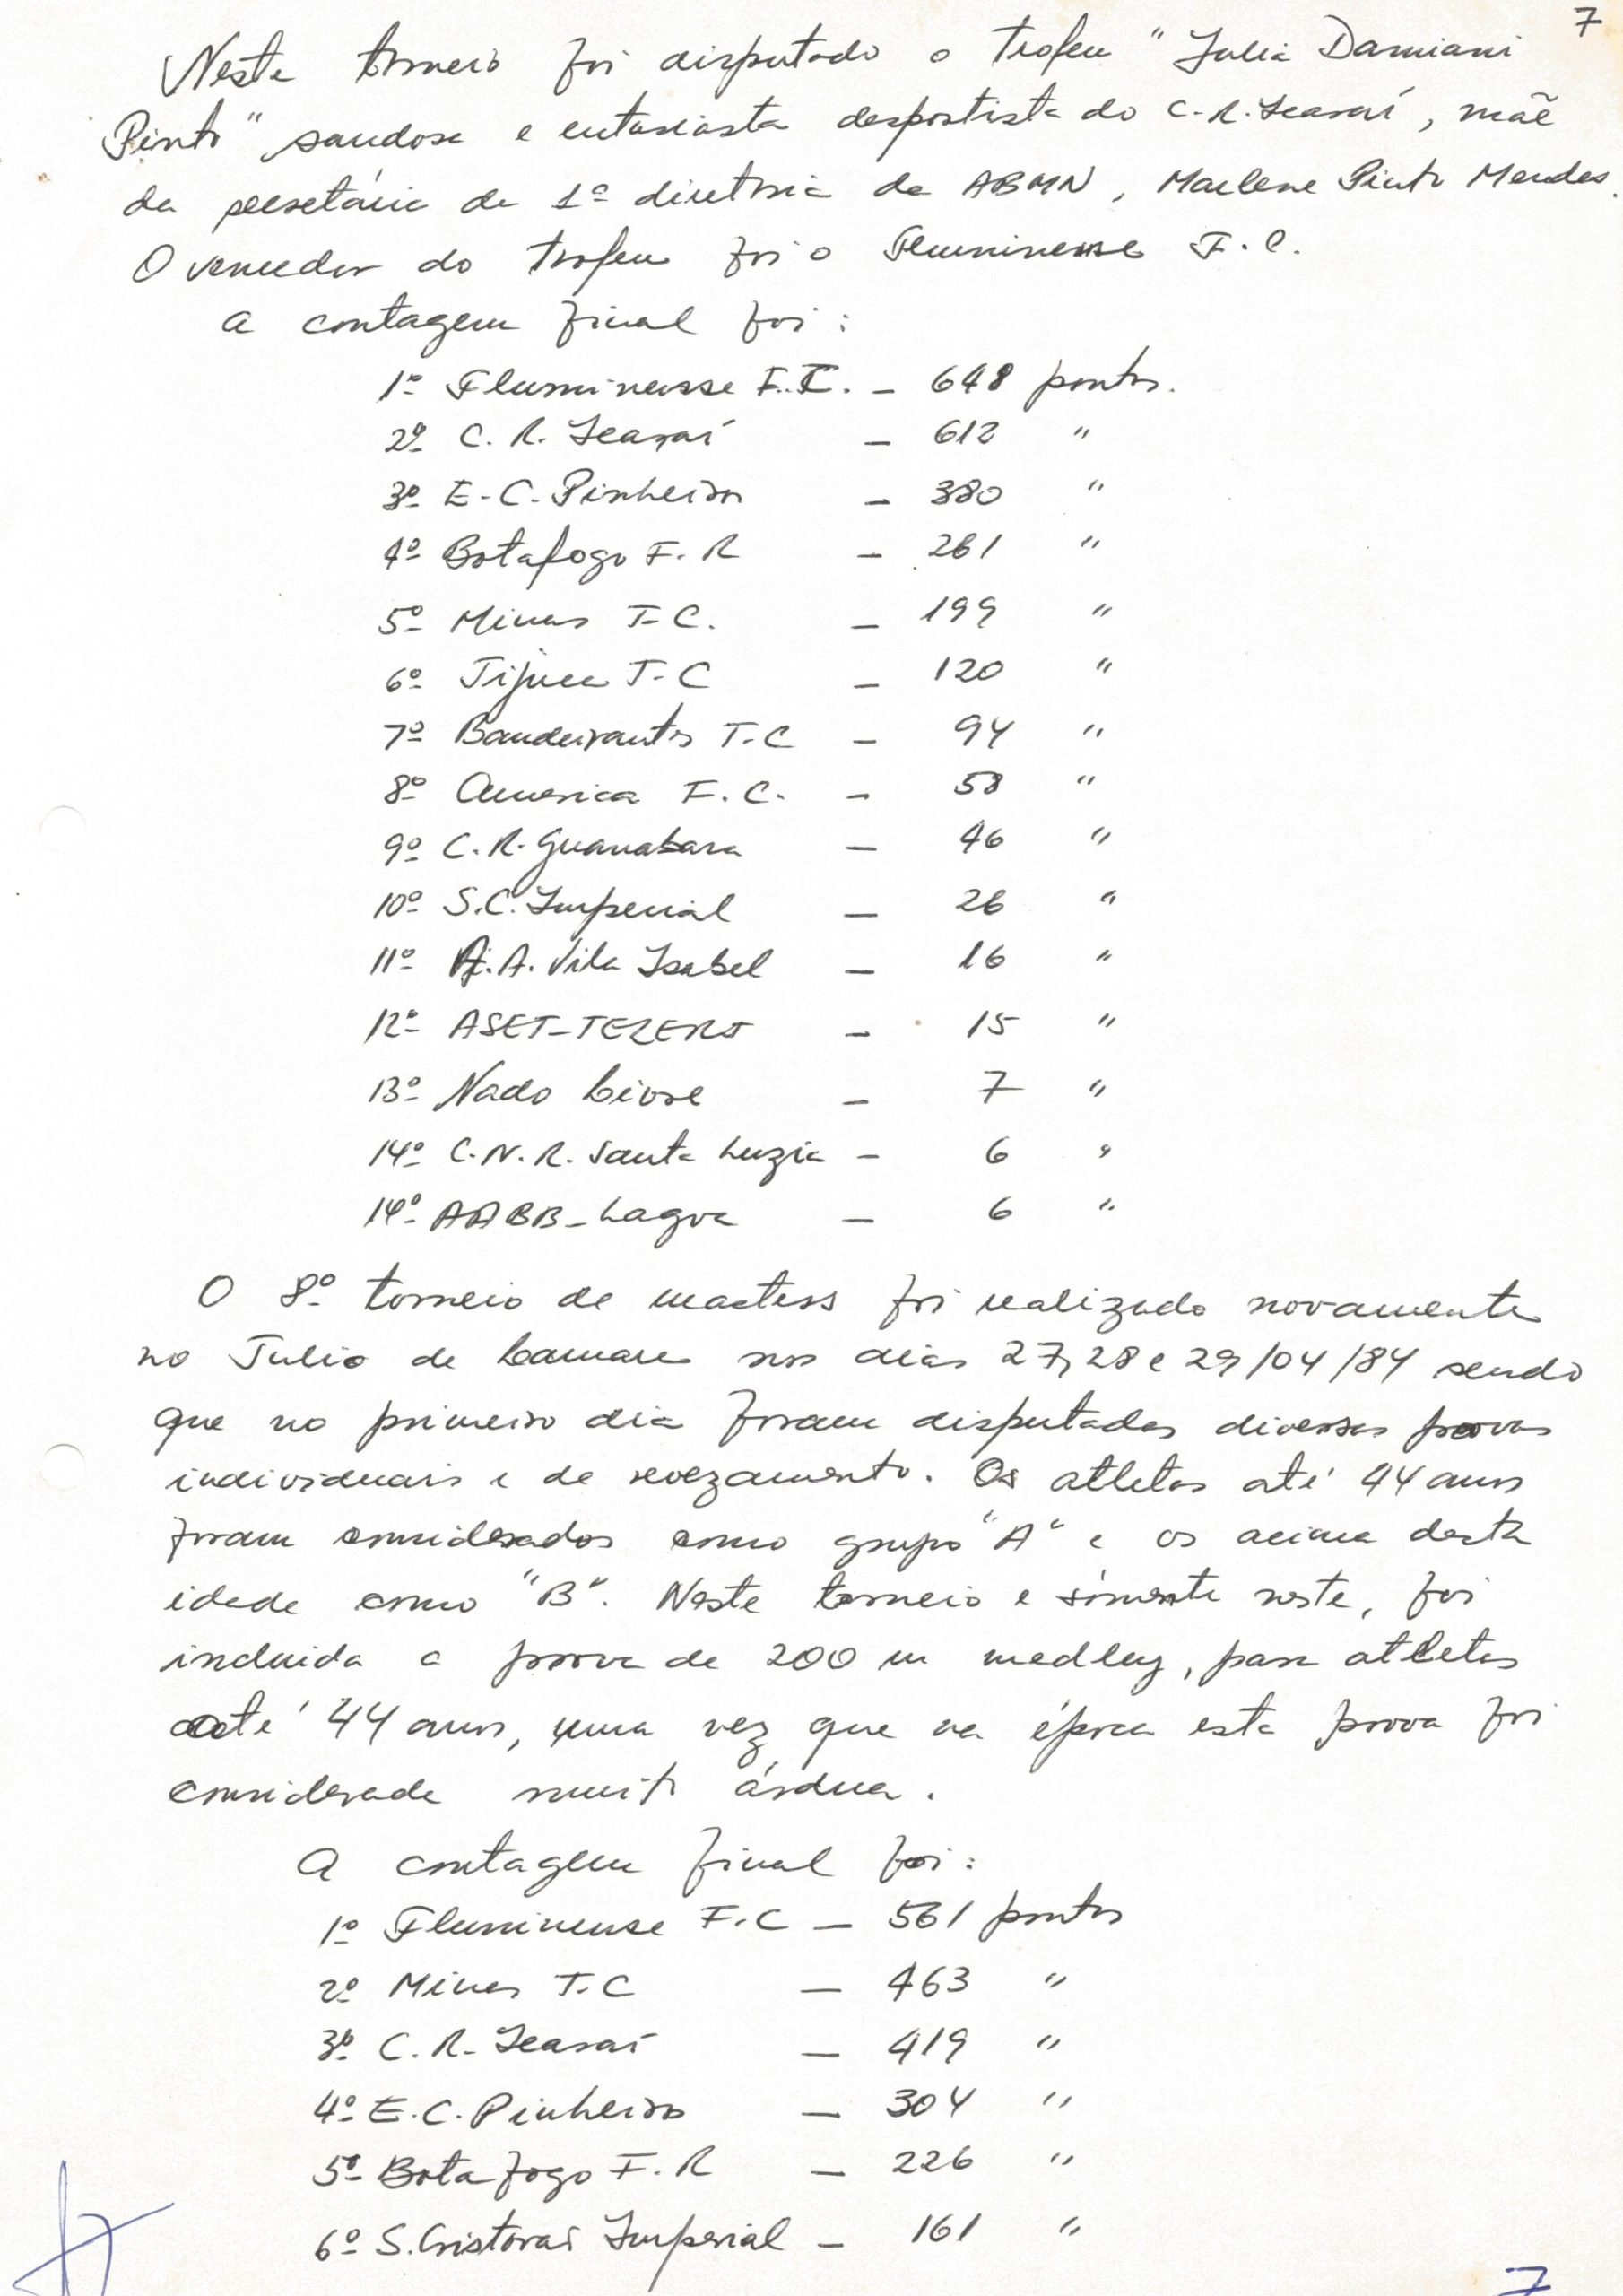 7
Neste torneio foi disputado o trofeu "Julia Damiani
Pinto" saudosa e entusiasta despostista do C.R. Icaraí, mãe
da secretária da 1ª diretoria da ABMN, Marlene Pinto Mendes.
O vencedor do trofeu foi o Fluminense F.C.
A contagem final foi:
1º Fluminense F.C. - 648 pontos.
2º C.R. Icaraí - 612 "
3º E.C. Pinheiros - 380 "
4º Botafogo F.R - 261 "
5º Minas T.C. - 199 "
6º Tijuca T.C - 120 "
7º Bandeirantes T.C - 94 "
8º America F.C. - 58 "
9º C.R. Guanabara - 46 "
10º S.C. Imperial - 26 "
11º A.A. Vila Isabel - 16 "
12º ASET-TELERJ - 15 "
13º Nado Livre - 7 "
14º C.N.R. Santa Luzia - 6 "
14º AABB-Lagoa - 6 "
O 8º torneio de masters foi realizado novamente
no Julio de Lamare nos dias 27, 28 e 29/04/84 sendo
que no primeiro dia foram disputadas diversas provas
individuais e de revezamento. Os atletas até 44 anos
foram considerados como grupo "A" e os acima desta
idade como "B". Neste torneio e sómente neste, foi
incluida a prova de 200 m medley, para atletas
até 44 anos, uma vez que na época esta prova foi
considerada muito árdua.
A contagem final foi:
1º Fluminense F.C - 561 pontos
2º Minas T.C - 463 "
3º C.R. Icaraí - 419 "
4º E.C. Pinheiros - 304 "
5º Botafogo F.R - 226 "
6º S. Cristovão Imperial - 161 "
7